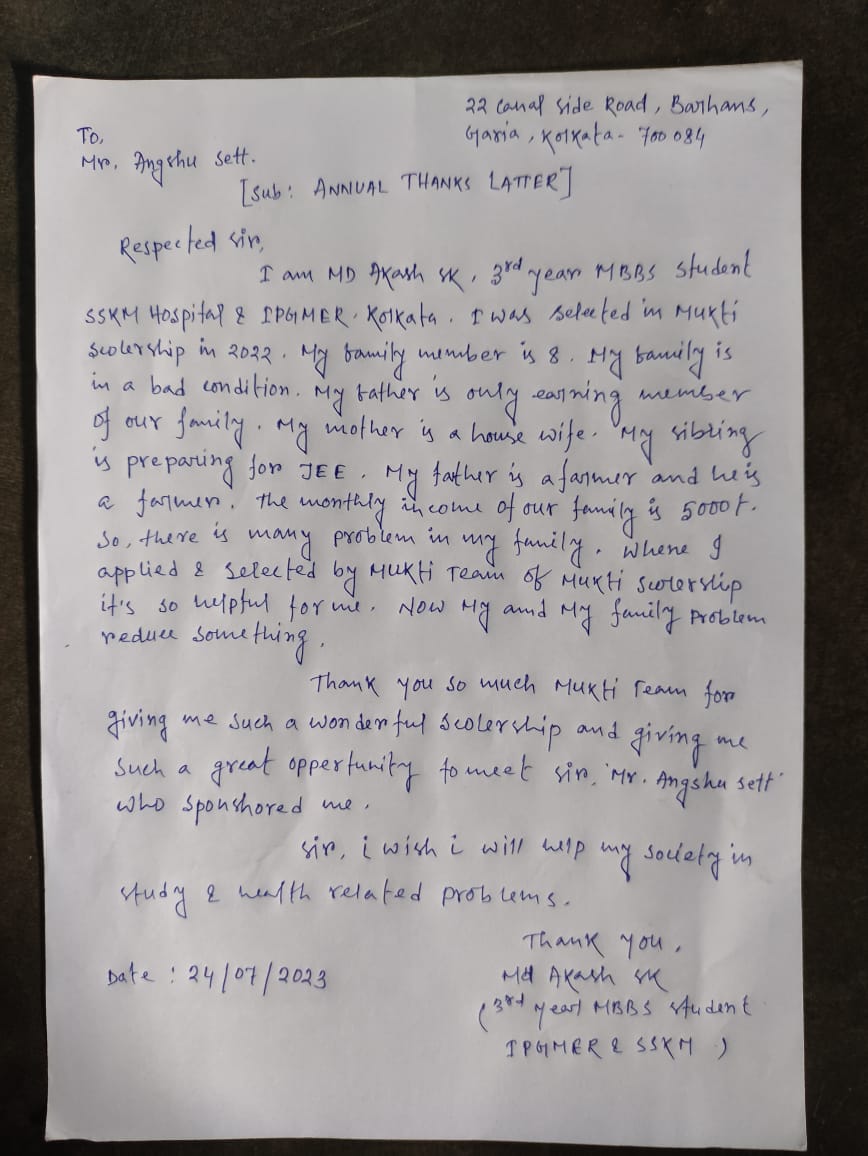 22 Canal Side Road, Barhans,
Garia, Kolkata - 700 084
To,
Mr. Angshu Sett.
[Sub: ANNUAL THANKS LATTER]
Respected Sir,
I am MD Akash SK, 3rd year MBBS student
SSKM Hospital & IPGMER. Kolkata. I was selected in Mukti
scolership in 2022. My family member is 8. My family is
in a bad condition. My father is only earning member
of our family. My mother is a house wife. My sibling
is preparing for JEE. My father is a farmer and he is
a farmer. The monthly income of our family is 5000 t.
So, there is many problem in my family. Where I
applied & selected by Mukti Team of Mukti scolership
it's so helpful for me. Now My and My family problem
reduce something.
Thank you so much Mukti Team for
giving me such a wonderful scolership and giving me
such a great oppertunity to meet sir, 'Mr. Angshu Sett'
who sponshored me.
Sir, i wish i will help my society in
study & health related problems.
Thank you,
Date : 24/07/2023
Md Akash SK
(3rd year MBBS student
IPGMER & SSKM )